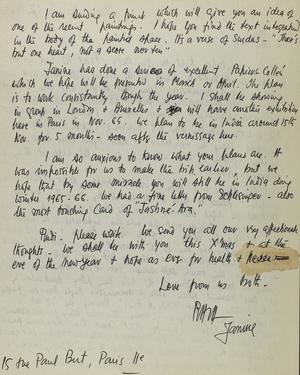 I am sending a print which will give you an idea of
one of the recent paintings. I hope you find the text integrated
in the body of the painted space. It's a verse of Surdas - "There's
but one heart, not a score or ten"
Janine has done a series of excellent Papiers Collés
which we hope will be presented in March or April. The plan
is to work consistently through the year. Shall be showing
in group in London & Bruxelles & will have another exhibition
here in Paris in Nov. 66. We plan to be in India around 15th
Nov. for 5 months - soon after the vernissage here.
I am so anxious to know what your plans are. It
was impossible for us to make this trip earlier, but we
hope that by some miracle you will still be in India during
winter 1965-66. We had a fine letter from Schlesinger - also
the most touching Card of "Jashn-e-
Rudi - please write. We send you all our very affectionate
thoughts - we shall be with you this X'mas & at the
eve of the new year & hope as ever for health &
Love from us both.
RAZA
Janine
15 rue Paul Bert, Paris 11e